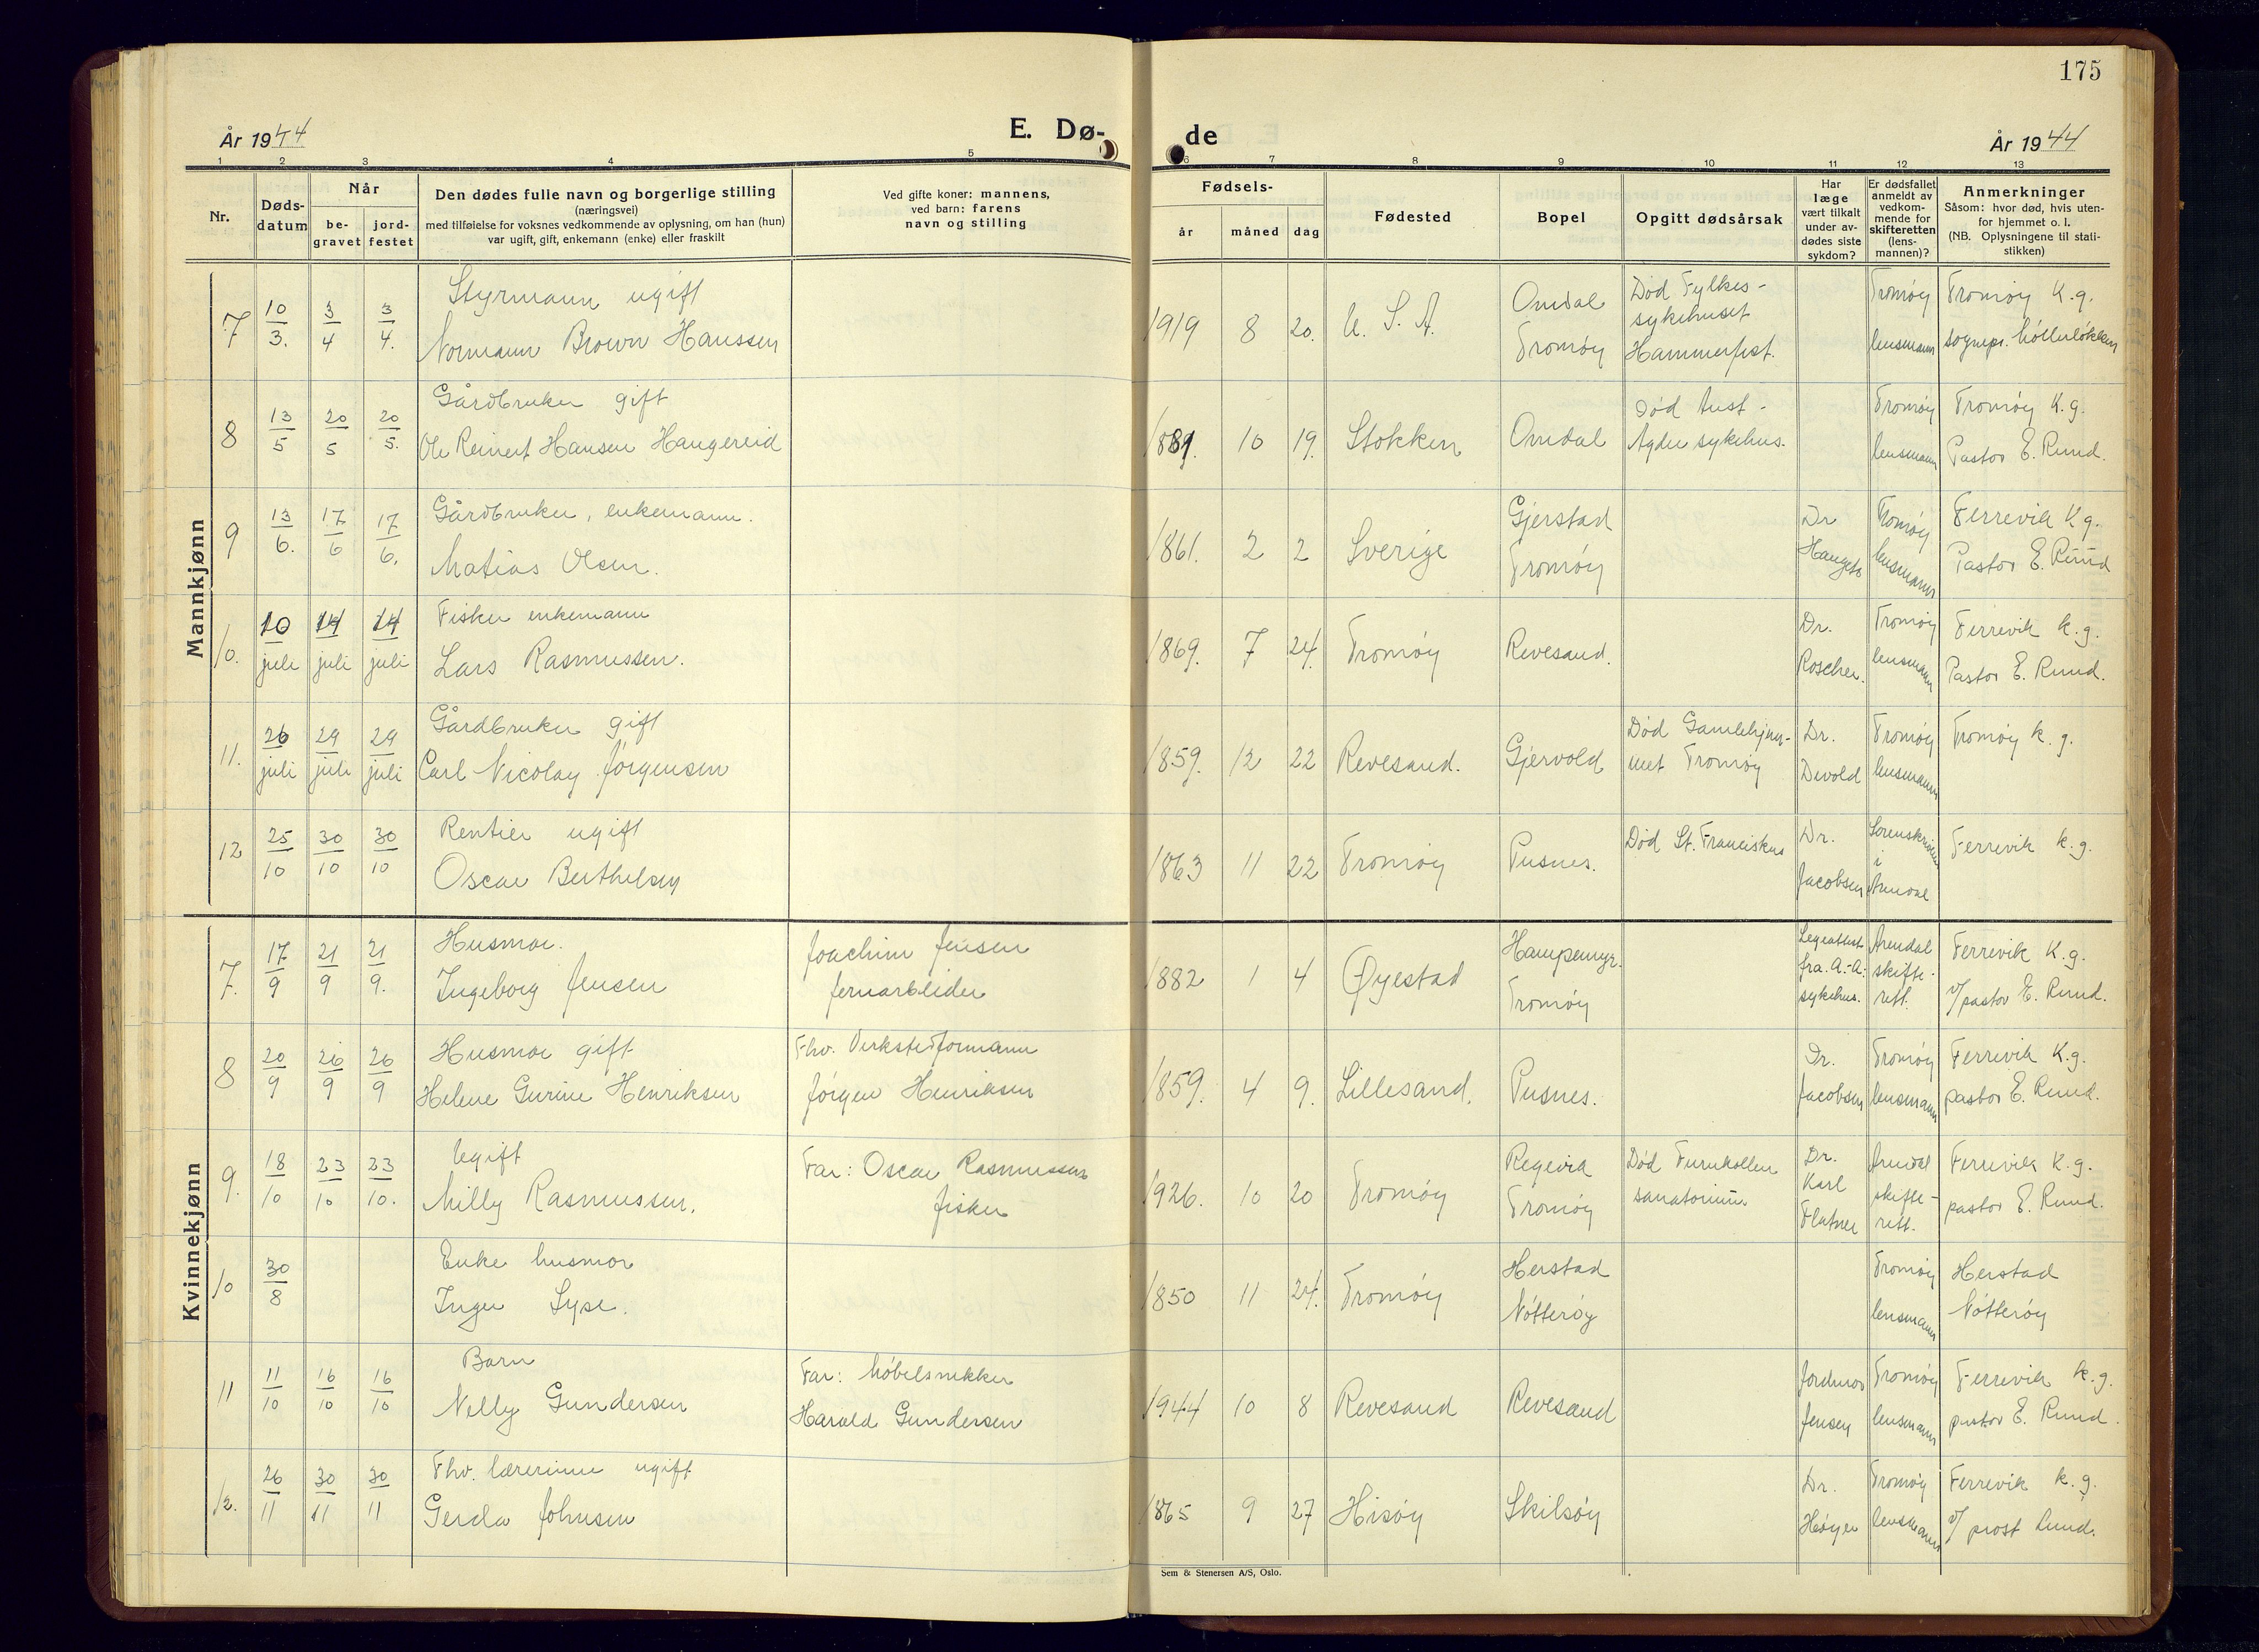 175
År 1944
E. Dø-
de
År 1944
1 2 3 4 5 6 7 8 9 10 11 12 13
Nr.
Døds-
datum
Når
be-
gravet
jord-
festet
Den dødes fulle navn og borgerlige stilling
(næringsvei)
med tilføielse for voksnes vedkommende av oplysning, om han (hun)
var ugift, gift, enkemann (enke) eller fraskilt
Ved gifte koner: mannens,
ved barn: farens
navn og stilling
Fødsels-
år
måned
dag
Fødested
Bopel
Opgitt dødsårsak
Har
læge
vært tilkalt
under av-
dødes siste
sykdom?
Er dødsfallet
anmeldt av
vedkom-
mende for
skifteretten
(lens-
mannen)?
Anmerkninger
Såsom: hvor død, hvis uten-
for hjemmet o. l.
(NB. Oplysningene til stati-
stikken)
Mannkjønn
7 10/3. 3/4 3/4.
Styrmann ugift
Normann Brown Hanssen
1919 8 20. U. S. A.
Omdal
Tromøy
Død Fylkes-
sykehuset
Hammerfest.
Tromøy
lensmann
Tromøy K.g.
sognepr. Møllerløkken
8 13/5 20/5 20/5.
Gårdbruker gift
Ole Reinert Hansen Haugereid
1881. 10 19. Stokken
Omdal
Død Aust-
Agder sykehus.
Tromøy
lensmann
Tromøy K.g.
Pastor E. Rund.
9 13/6. 17/6 17/6.
Gårdbruker, enkemann.
Matias Olsen.
1861. 2 2 Sverige
Gjerstad
Tromøy
Dr
Haugeto
Tromøy
lensmann
Færrevik K.g.
Pastor E. Rund
10. 10/juli 14/juli 14/juli
Fisker enkemann
Lars Rasmussen.
1869. 7 24. Tromøy
Revesand.
Dr.
Roscher.
Tromøy
lensmann
Færrevik k.g.
Pastor E. Rund.
11. 26/juli 29/juli 29/juli
Gårdbruker gift
Carl Nicolay Jørgensen
1859. 12 22 Revesand.
Gjervold
Død Gamlehjem-
met Tromøy
Dr.
Devold
Tromøy
lensmann
Tromøy k.g.
12 25/10 30/10 30/10
Rentier ugift
Oscar Berthelsen
1863 11 22 Tromøy
Pusnes.
Død St. Franciskus
Dr.
Jacobsen
Sorenskriver
i
Arendal
Færrevik k.g.
Kvinnekjønn
7. 17/9 21/9 21/9.
Husmor.
Ingeborg Jensen
Joachim Jensen
jernarbeider
1882 1 4 Øyestad
Hampemyr.
Tromøy
Legeattest
fra A.-A.
sykehus.
Arendal
skifte-
rett.
Færrevik K.g.
v/pastor E. Rund.
8 20/9 26/9 26/9
Husmor gift
Helene Gurine Henriksen
Fhv. Verkstedformann
Jørgen Henriksen
1859. 4 9. Lillesand.
Pusnes.
Dr.
Jacobsen
Tromøy
lensmann
Færrevik K.g.
pastor E. Rund.
9. 18/10 23/10 23/10.
Ugift
Milly Rasmussen.
Far: Oscar Rasmussen
fisker
1926. 10 20 Tromøy
Regevik
Tromøy
Død Furukollen
sanatorium
Dr.
Karl
Arendal
skifte-
rett.
Færrevik K.g.
pastor E. Rund.
10 30/8
Enke husmor
Inger Lyse.
1850 11 24. Tromøy
Herstad
Nøtterøy
Tromøy
lensmann
Herstad
Nøtterøy
11 11/10 16/10 16/10
Barn
Nelly Gundersen
Far: Møbelsnekker
Harald Gundersen
1944 10 8 Revesand
Revesand
Jordmor
Jensen
Tromøy
lensmann
Færrevik k.g.
pastor E. Rund.
12. 26/11 30/11 30/11
Fhv. lærerinne ugift
Gerda Johnsen
1865 9 27 Hisøy
Skilsøy
Dr.
Høyer
Tromøy
lensmann
Færrevik k.g.
v/ prost Lund.
Sem & Stenersen A/S, Oslo.